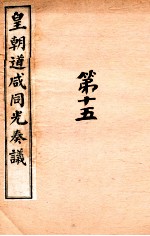 皇朝道咸同光奏議
第十五